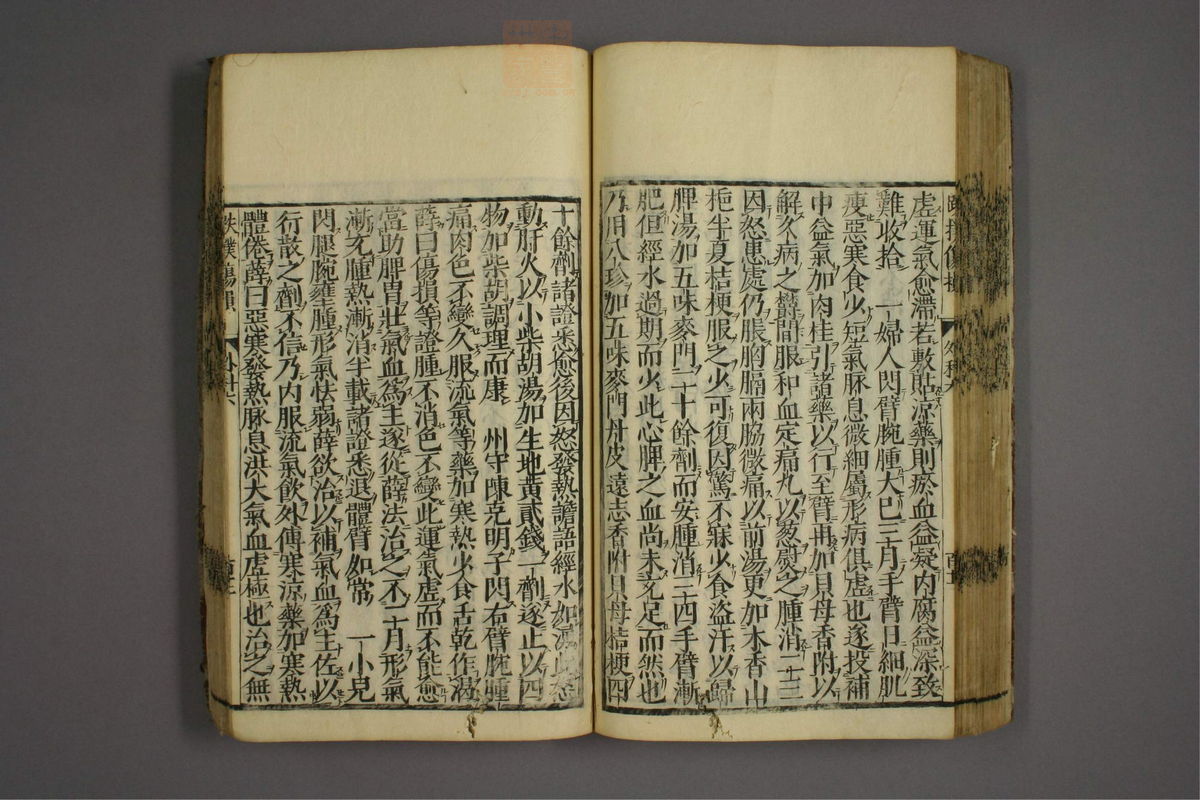 虛運氣愈滯若敷貼凉藥則瘀血益凝内腐益深致
難收拾　一婦人閃臂腕腫大已三月手臂日細肌
瘦惡寒食少短氣脉息微細屬形病俱虛也遂投補
中益氣加肉桂引諸藥以行至臂再加貝母香附以
解久病之欝間服和血定痛丸以葱熨之腫消二三
因怒患處仍脹胸膈兩脇微痛以前湯更加木香山
梔半夏桔梗服之少可復因驚不寐少食盗汗以歸
脾湯加五味麥門二十餘劑而安腫消三四手臂漸
肥但經水過期而少此心脾之血尚未充足而然也
乃用八珍加五味麥門丹皮遠志香附貝母桔梗四
十餘劑諸證悉愈後因怒發熱譫語經水如
動肝火以小柴胡湯加生地黄貳錢一劑遂止以四
物如柴胡調理而康　州守陳克明子閃右臂腕腫
痛肉色不變久服流氣等藥加寒熱少食舌乾作渴
薛曰傷損等證腫不消色不變此運氣虛而不能愈
當助脾胃壯氣血爲主遂從薛法治之不二月形氣
漸充腫熱漸消半載諸證悉退體臂如常　一小兒
閃腿腕壅腫形氣怯弱薛欲治以補氣血爲主佐以
行散之劑不信乃内服流氣飲外傅寒凉藥加寒熱
體倦薛曰惡寒發熱脉息洪大氣血虛極也治之無